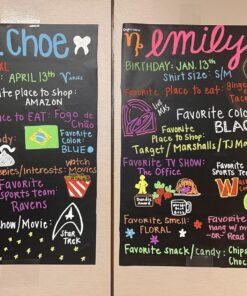 . CHOE
APRIL 13th Aries
place to shop:
AMAZON
Place to EAT: Fogo de
Chão
Favorite
Color:
BLUE
watch
Movies
Favorite
Sports team:
Ravens
Show/Movie:
STAR
TREK
emily
BIRTHDAY: JAN. 13th
Shirt size: S/M
Favorite place to eat:
Favorite
BLA
Favorite
Place to Shop:
Target / Marshalls / TJ Ma
Favorite TV SHOW:
The Office
Dundie
Award
World's
Best
Boss
Favorite smell:
FLORAL
Favorite
w/ my
-OR- Read
Favorite snack/candy: Chips
Choc